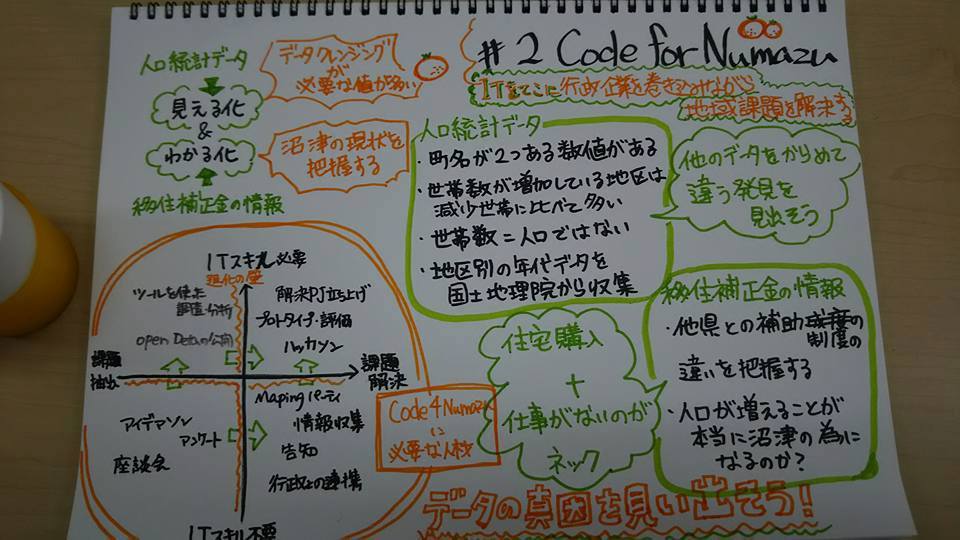 # 2 Code for Numazu
ITをてこに行政・企業を巻きこみながら
地域課題を解決する
人口統計データ
見える化
&
わかる化
移住補正金の情報
データクレンジング
が
必要な値が多い
沼津の現状を
把握する
人口統計データ
・町名が2つある数値がある
・世帯数が増加している地区は
減少世帯に比べて多い
・世帯数=人口ではない
・地区別の年代データを
国土地理院から収集
他のデータをからめて
違う発見を
見出そう
移住補正金の情報
・他県との補助制度の
違いを把握する
・人口が増えることが
本当に沼津の為に
なるのか?
住宅購入
+
仕事がないのが
ネック
ITスキル必要
進化の壁
ツールを使った
調査・分析
open Dataの公開
解決PJ立ち上げ
プロトタイプ・評価
ハッカソン
課題
抽出
課題
解決
アイデアソン
アンケート
座談会
Maping パーティ
情報収集
告知
行政との連携
ITスキル不要
Code4Numazu
に
必要な人材
データの真因を見い出そう!